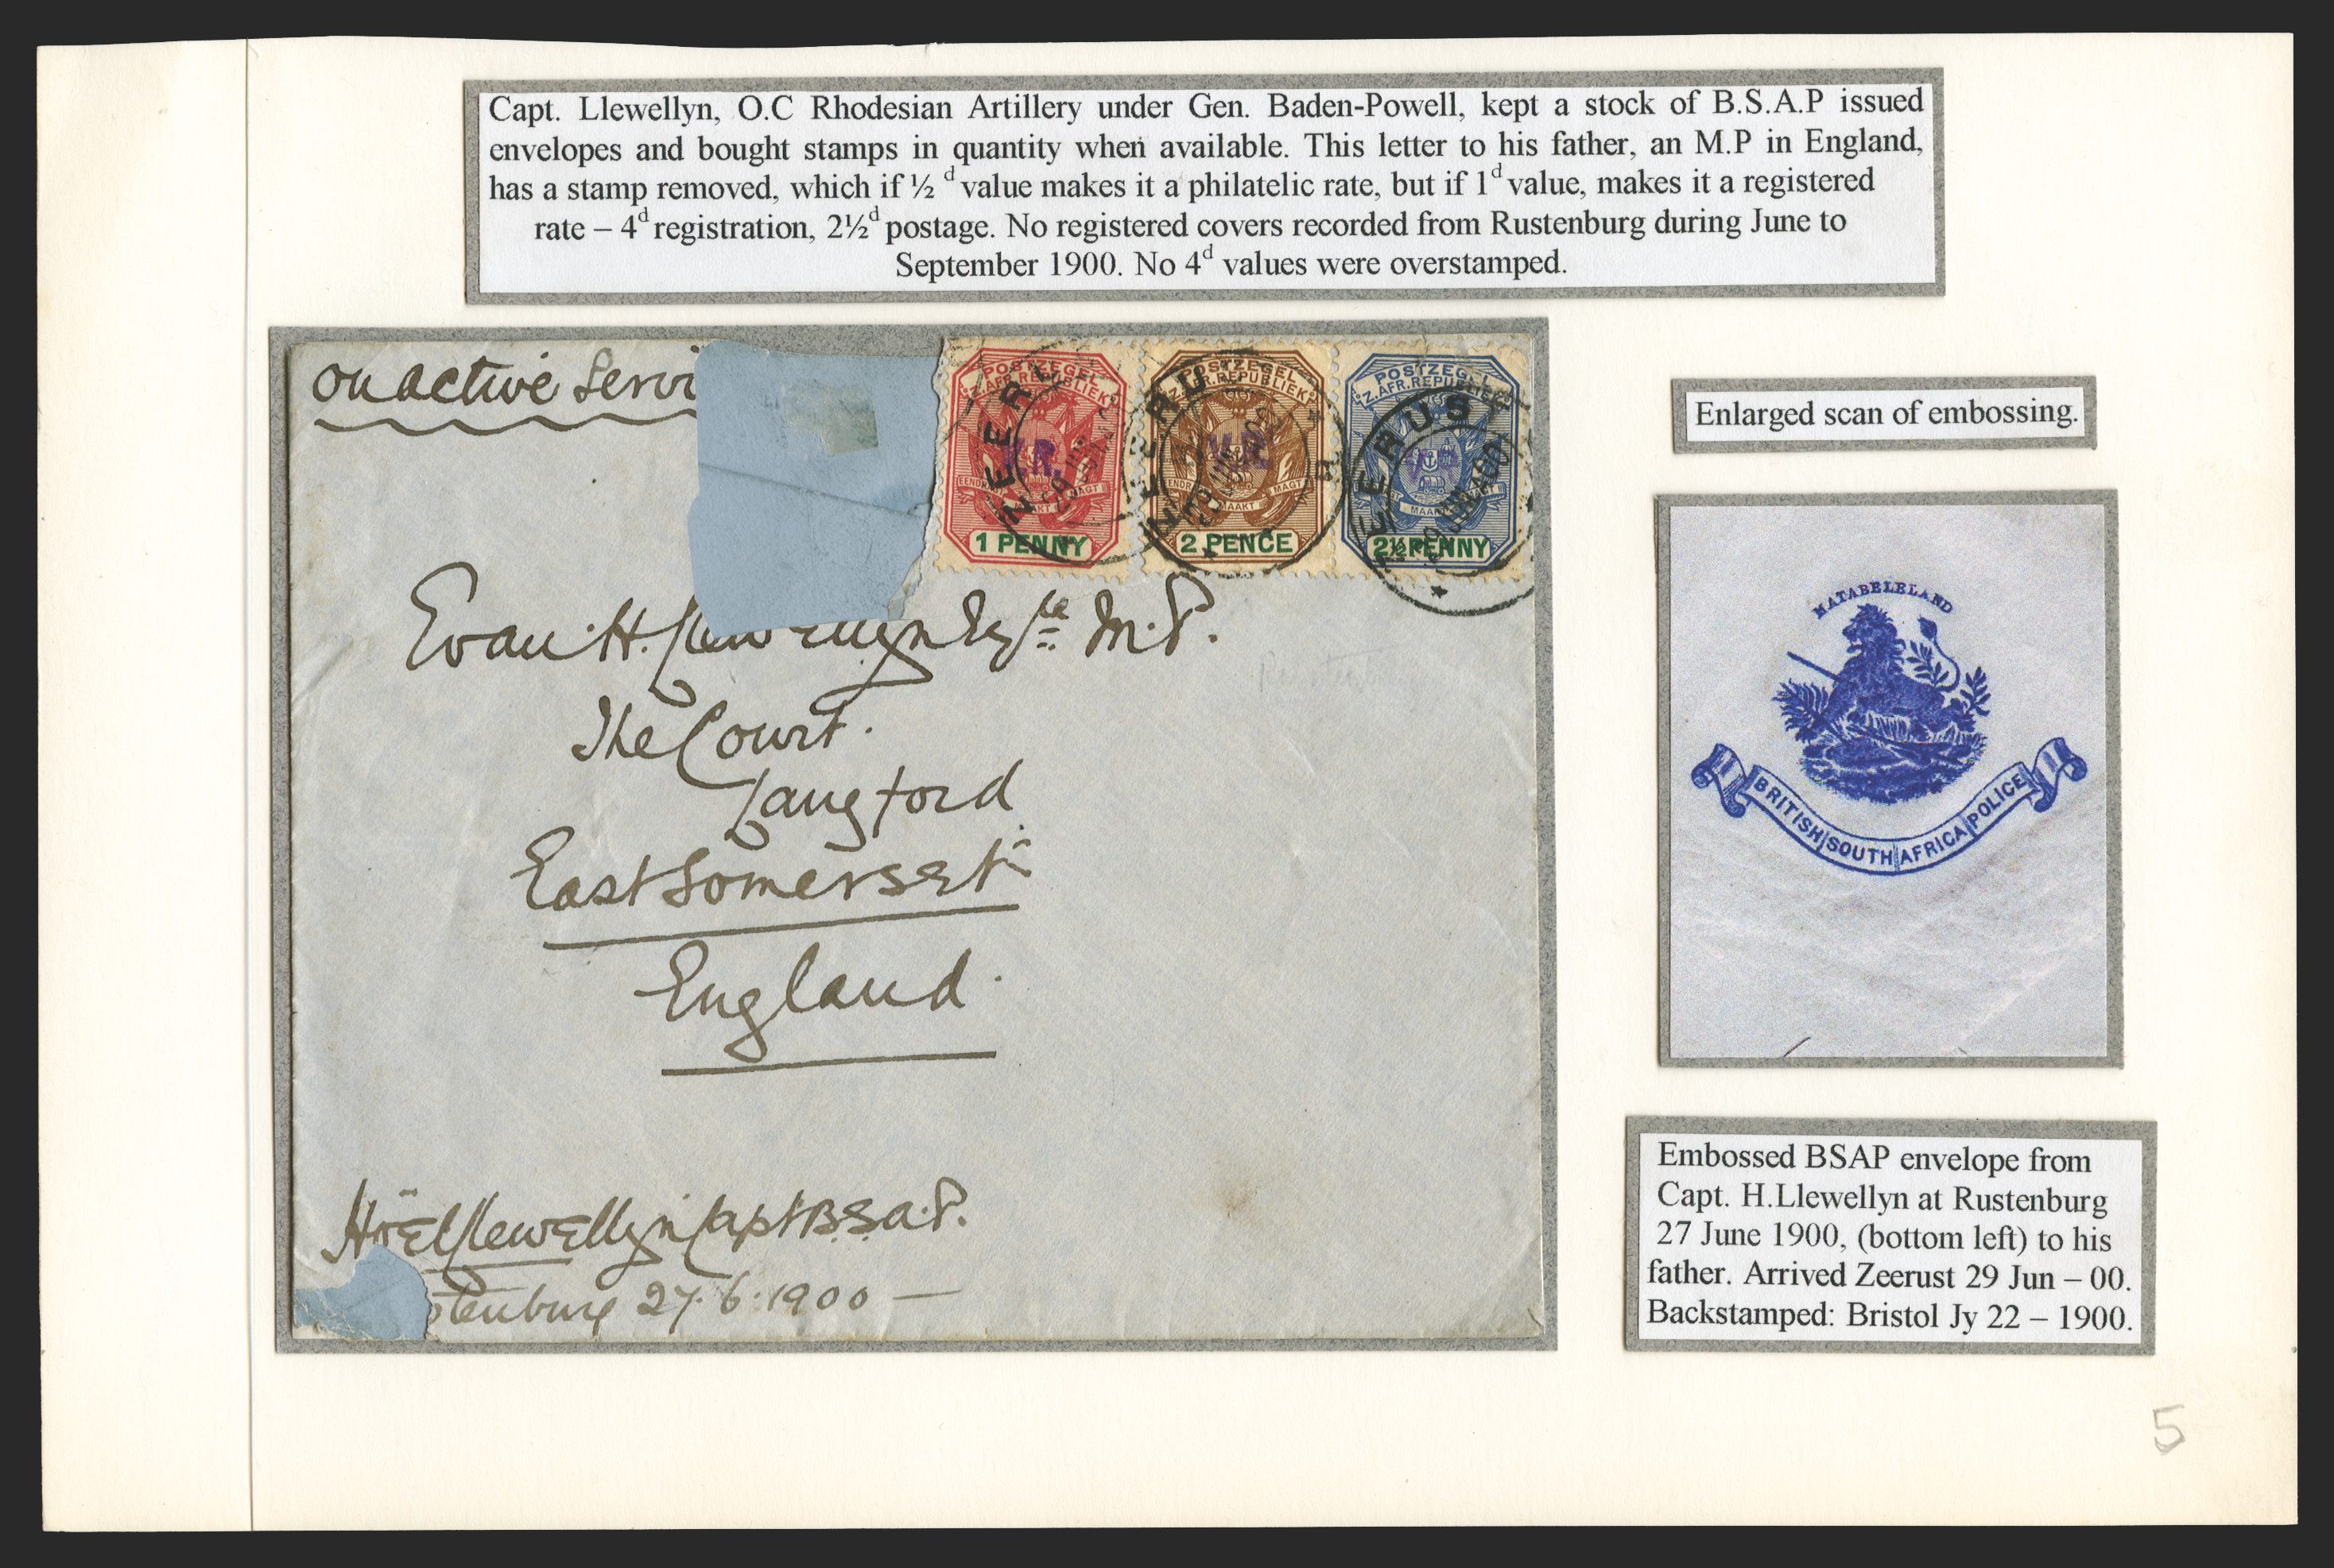 Capt. Llewellyn, O.C Rhodesian Artillery under Gen. Baden-Powell, kept a stock of B.S.A.P issued
envelopes and bought stamps in quantity when available. This letter to his father, an M.P in England,
has a stamp removed, which if ½ d value makes it a philatelic rate, but if 1d value, makes it a registered
rate – 4d registration, 2½d postage. No registered covers recorded from Rustenburg during June to
September 1900. No 4d values were overstamped.
on active Servi
POSTZEGEL
Z.AFR.REPUBLIEK
V.R.
EENDRAGT MAAKT MAGT
1 PENNY
POSTZEGEL
Z.AFR.REPUBLIEK
V.R.
EENDRAGT MAAKT MAGT
2 PENCE
POSTZEGEL
Z.AFR.REPUBLIEK
2½ PENNY
ZEERUST
29 JUN
Evan. H. Llewellyn Esqre M.P.
The Court.
Langford
East Somerset
England.
Höel Llewellyn Capt B.S.A.P.
stenburg 27.6.1900 —
Enlarged scan of embossing.
MATABELELAND
BRITISH SOUTH AFRICA POLICE
Embossed BSAP envelope from
Capt. H.Llewellyn at Rustenburg
27 June 1900, (bottom left) to his
father. Arrived Zeerust 29 Jun – 00.
Backstamped: Bristol Jy 22 – 1900.
5